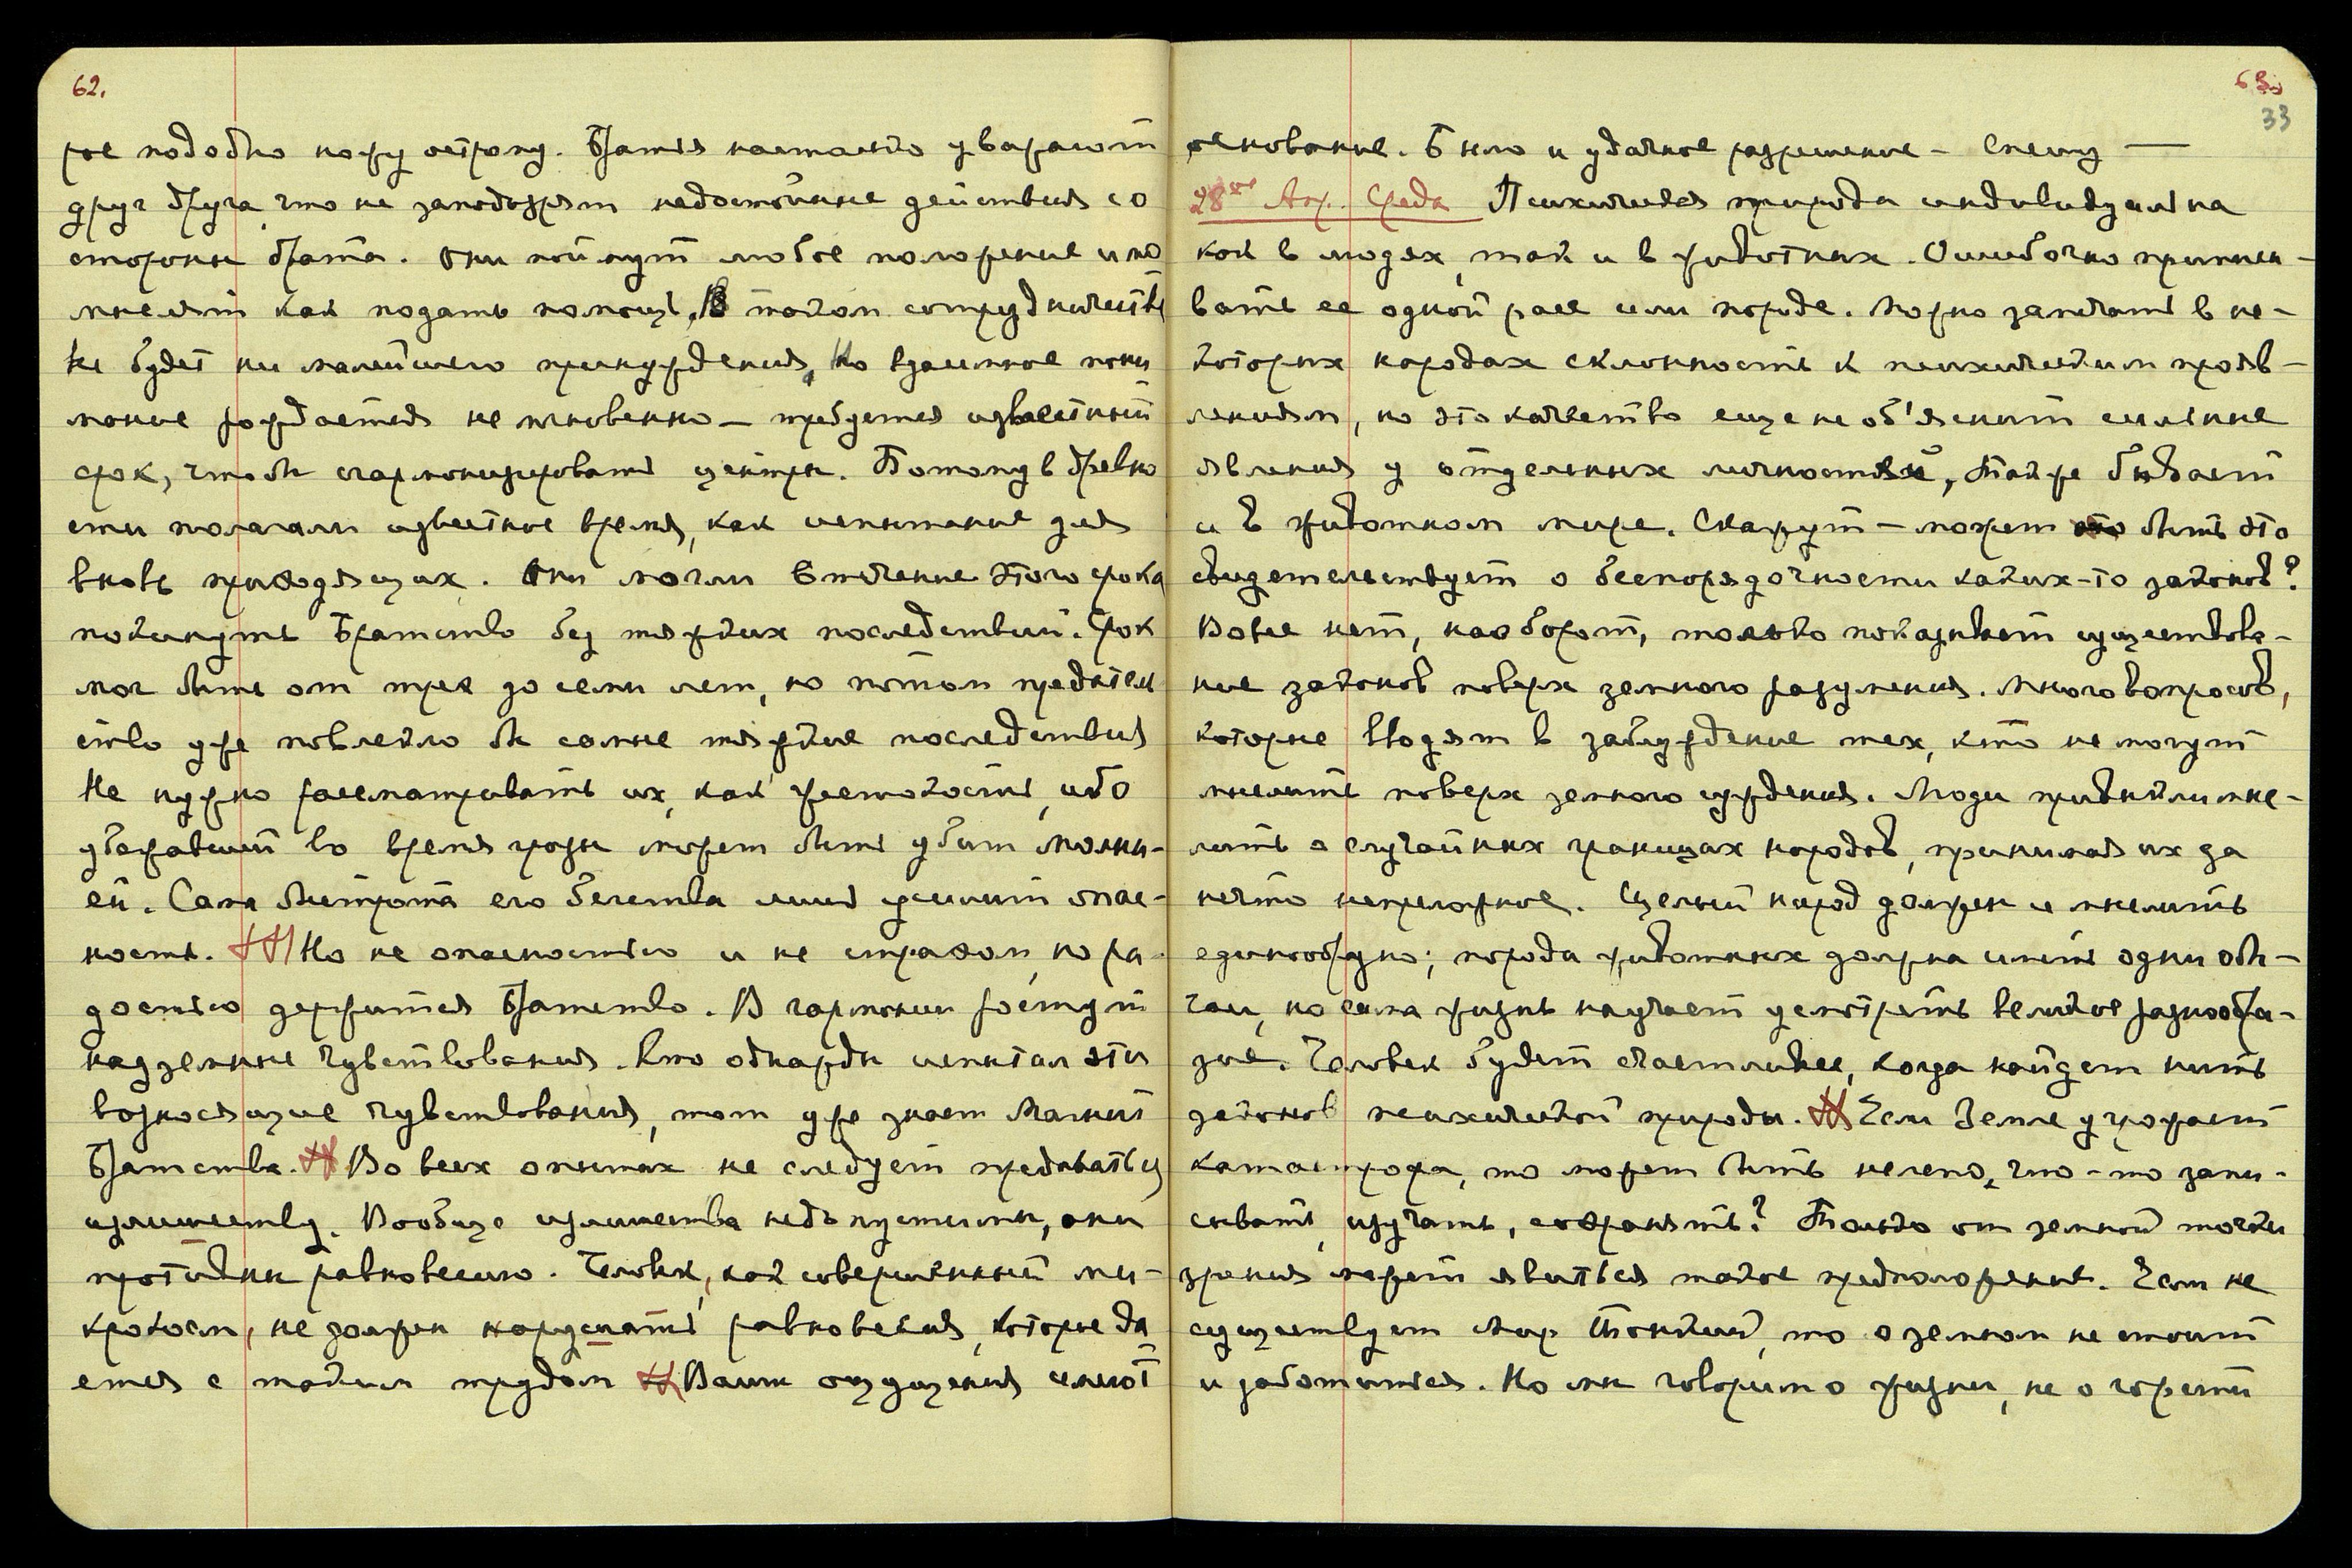 62.
рое подобно ножу острому. Братья настолько уважают
друг друга, что не заподозрят недостойные действия со
стороны брата. Они поймут любое положение и по
мыслят как подать помощь. В таком сотрудничестве
не будет ни малейшего принуждения. Но взаимное пони
мание рождается не мгновенно — требуется известный
срок, чтобы сгармонизировать центры. Потому в древно
сти полагали известное время, как испытание для
вновь приходящих. Они могли в течение этого срока
покинуть Братство без тяжких последствий. Срок
мог быть от трех до семи лет, но потом предатель
ство уже повлекло бы самые тяжкие последствия
Не нужно рассматривать их, как жестокость, ибо
убежавший во время грозы может быть убит молни-
ей. Сама быстрота его бегства лишь усилит опас-
ность. Но не опасностью и не страхом, но ра-
достью держится Братство. В гармонии растут
надземные чувствования. Кто однажды испытал эти
возносящие чувствования, тот уже знает Магнит
Братства. Во всех опытах не следует предаваться
излишеству. Вообще излишества недопустимы, они
противны равновесию. Человек, как совершенный ми-
крокосм, не должен нарушать равновесия, которые да
ется с таким трудом Ваши ощущения имеют
63.
33
основание. Было и удачное разрешение — Спешу —
28ое Апр. Среда Психическая природа индивидуальна
как в людях, так и в животных. Ошибочно приписы-
вать ее одной расе или породе. Можно замечать в не-
которых народах склонность к психическим прояв-
лениям, но это качество еще не об'яснит сильные
явления у отдельных личностей, также бывает
и в животном мире. Скажут — может быть это
свидетельствует о беспорядочности каких-то законов?
Вовсе нет, наоборот, только показывает существова-
ние законов поверх земного разумения. Много вопросов,
которые вводят в заблуждение тех, кто не могут
мыслить поверх земного суждения. Люди привыкли мыс-
лить о случайных границах народов, принимая их за
нечто непреложное. Целый народ должен и мыслить
единообразно; порода животных должна иметь одни обы-
чаи, но сама жизнь научает усмотреть великое разнообра-
зие. Человек будет счастливее, когда найдет нить
законов психической природы. Если Земле угрожает
катастрофа, то может быть нелепо, что-то запи-
сывать, изучать, сохранять? Только от земной точки
зрения может явиться такое предположение. Если не
существует Мир Тонкий, то о земном не стоит
и заботиться. Но мы говорим о жизни, не о горести